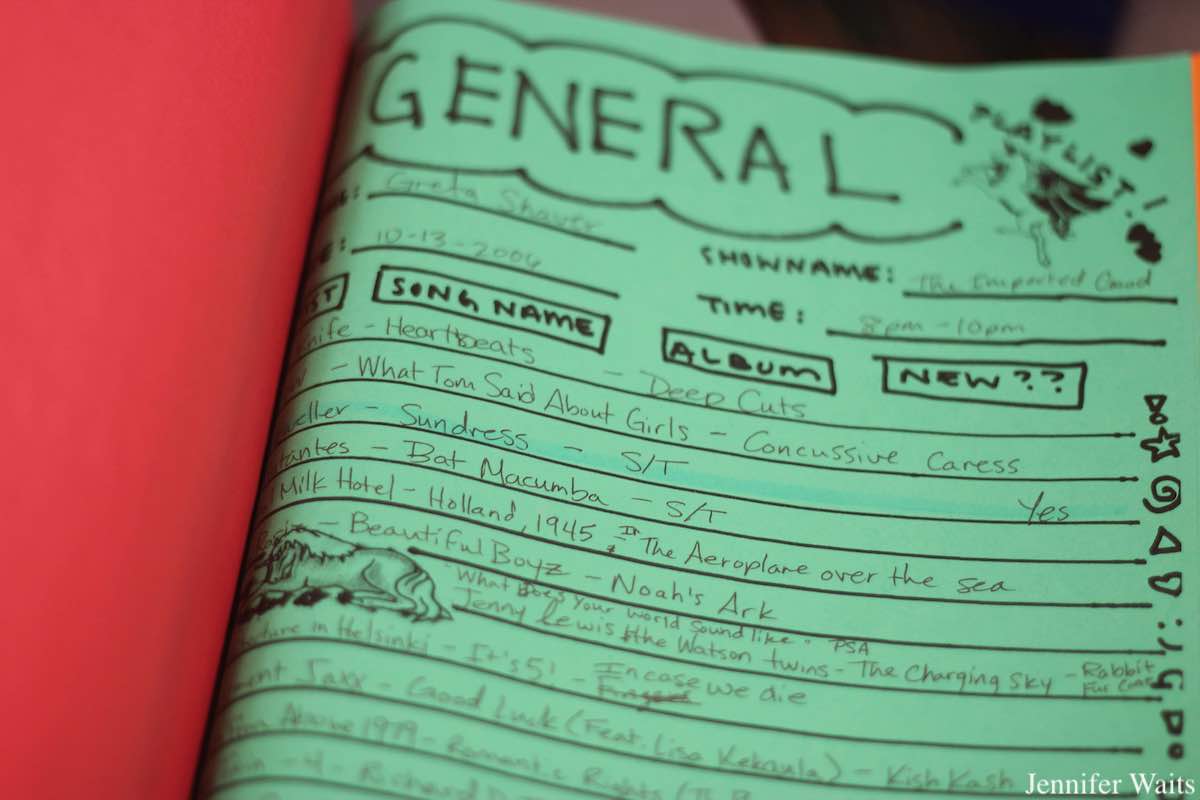 GENERAL
PLAYLIST!
Greta Shaver
10-13-2006
SHOWNAME: The Imported
TIME: 8pm - 10pm
SONG NAME
ALBUM
NEW??
- Heartbeats - Deep Cuts
- What Tom Said About Girls - Concussive Caress
- Sundress - S/T Yes
- Bat Macumba - S/T
Milk Hotel - Holland, 1945 - In The Aeroplane over the sea
- Beautiful Boyz - Noah's Ark
"What Does Your World Sound like" PSA
Jenny Lewis & the Watson twins - The Charging Sky - Rabbit Fur Coat
in Helsinki - It's 5! - In case we die
Jaxx - Good Luck (Feat. Lisa Kekaula) - Kish Kash
Above 1979 - Romantic Rights
Jennifer Waits